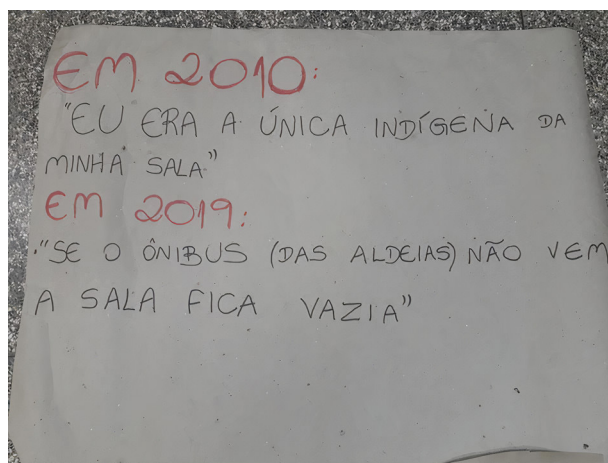 EM 2010:
"EU ERA A ÚNICA INDÍGENA DA
MINHA SALA"
EM 2019:
."SE O ÔNIBUS (DAS ALDEIAS) NÃO VEM
A SALA FICA VAZIA"